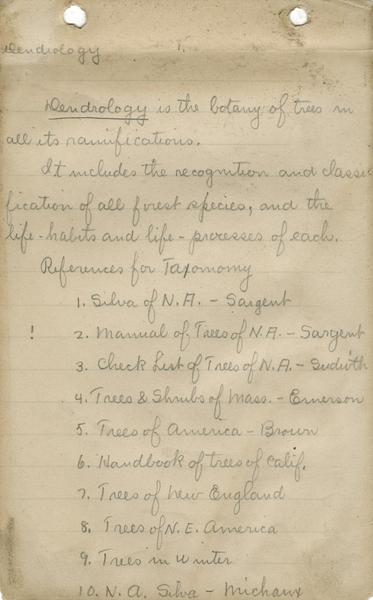 Dendrology 1.
Dendrology is the botany of trees in
all its ramifications.
It includes the recognition and classi-
fication of all forest species, and the
life-habits and life-processes of each.
References for Taxonomy
1. Silva of N.A. - Sargent
! 2. Manual of Trees of N.A. - Sargent
3. Check List of Trees of N.A. - Sudwoth
4. Trees & Shrubs of Mass. - Emerson
5. Trees of America - Brown
6. Handbook of trees of Calif.
7. Trees of New England
8. Trees of N.E. America
9. Trees in Winter
10. N.A. Silva - Michaux